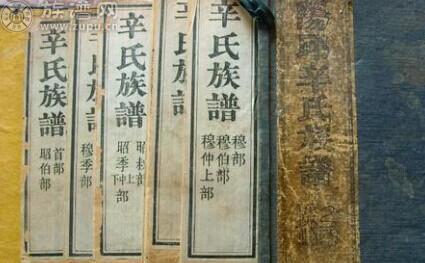 族谱网
www.zupu.cn
辛氏族譜
首部
昭伯部
辛氏族譜
穆季部
辛氏族譜
昭叔部
昭季上
下部
辛氏族譜
辛氏族譜
穆部
穆伯部
穆仲上部
辛氏族譜